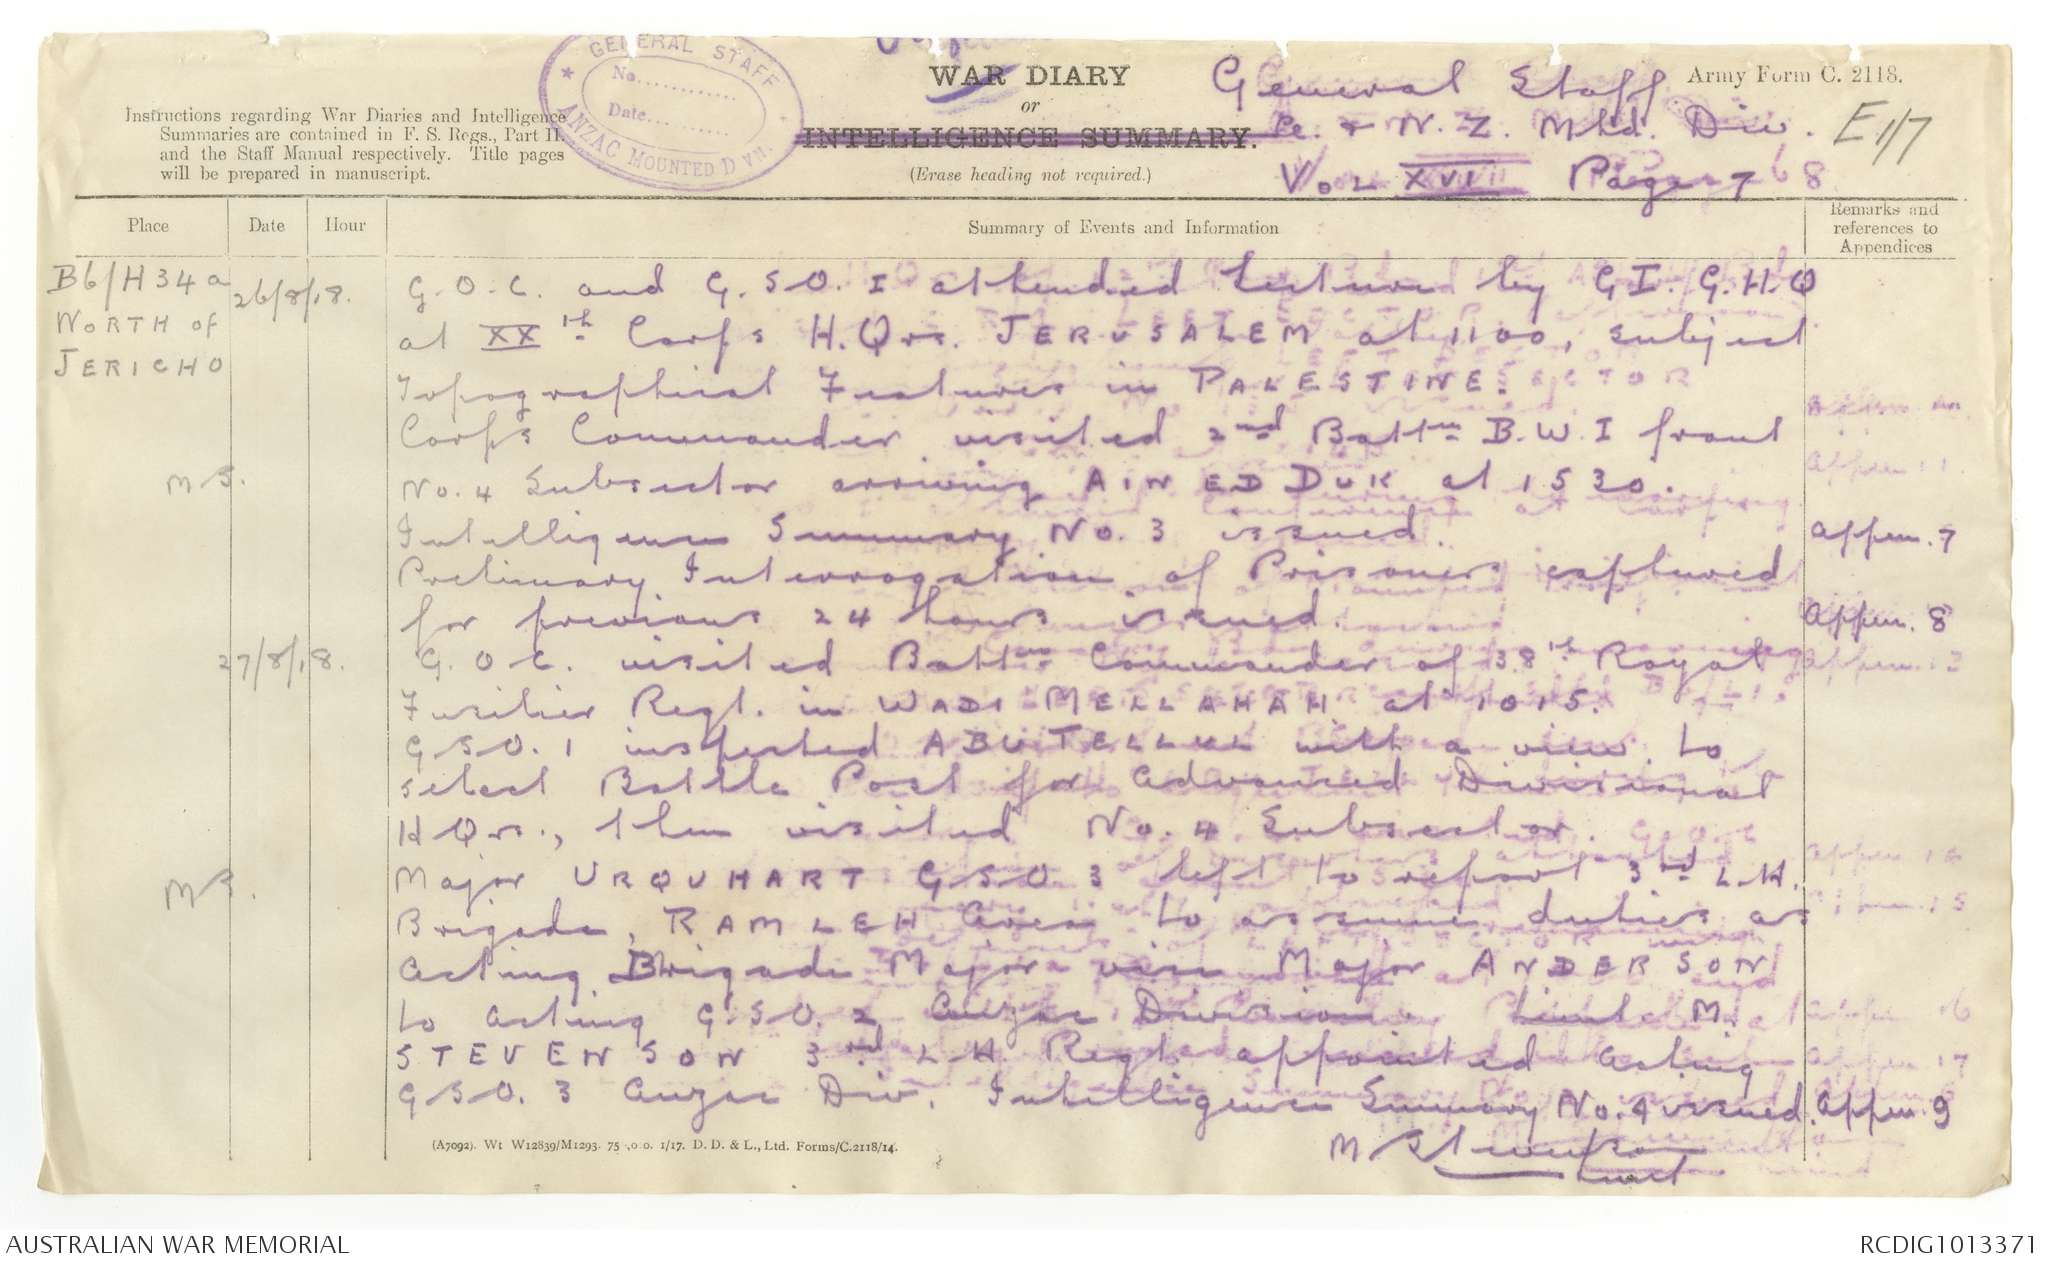 GENERAL STAFF
No............
Date...........
ANZAC MOUNTED DVN.
WAR DIARY
or
INTELLIGENCE SUMMARY.
(Erase heading not required.)
General Staff
& N.Z. Mtd. Div.
Vol XVII Page 7 8
Army Form C. 2118.
E1/7
Instructions regarding War Diaries and Intelligence
Summaries are contained in F. S. Regs., Part II.
and the Staff Manual respectively. Title pages
will be prepared in manuscript.
Place
Date
Hour
Summary of Events and Information
Remarks and
references to
Appendices
B6/H34a
NORTH of
JERICHO
26/8/18.
G.O.C. and G.S.O.I attended Lecture by GI. G.H.Q
at XXth Corps H.Qrs. JERUSALEM at 1100, subject
Topographical Features in PALESTINE.
Corps Commander visited 2nd Battn B.W.I front
MS.
No.4 Subsector arriving AIN ED DUK at 1530.
Intelligence Summary No. 3 issued. Appen. 7
Preliminary Interrogation of Prisoners captured
for previous 24 hours issued. Appen. 8
27/8/18. G.O.C. visited Battn Commander of 38th Royal
Fusilier Regt. in WADI MELLAHAH at 1015.
GSO.1 inspected ABU TELLUL with a view to
select Battle Post for Advanced Divisional
H Qrs., then visited No. 4 Subsector.
MS. Major URQUHART GSO 3 left to report 3rd L.H.
Brigade, RAMLEH Area to assume duties as
Acting Brigade Major vice Major ANDERSON
to Acting G.S.O. 2 Anzac Division. Lieut M.
STEVENSON 3rd L.H. Regt. appointed Acting
GSO. 3 Anzac Div. Intelligence Summary No. 4 issued. Appen. 9
M Stevenson
Lieut
(A7092). Wt W12839/M1293. 75 ,0 0. 1/17. D. D. & L., Ltd. Forms/C.2118/14.
AUSTRALIAN WAR MEMORIAL
RCDIG1013371